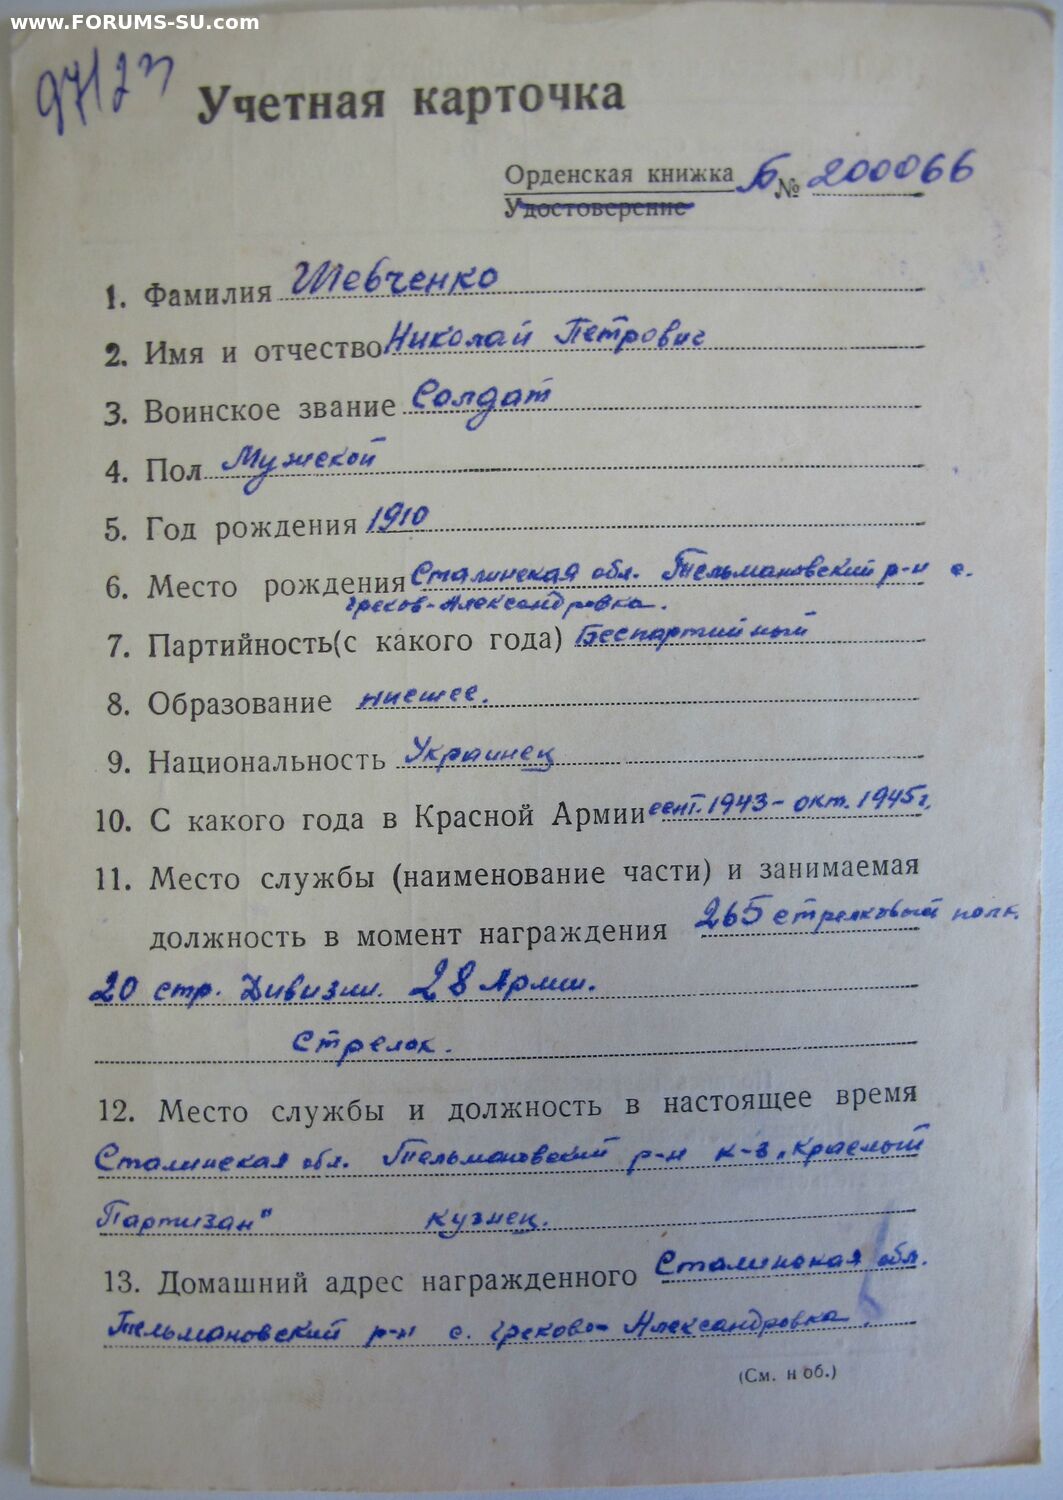 www.FORUMS-SU.com
97123
Учетная карточка
Орденская книжка Б № 200066
Удостоверение
1. Фамилия Шевченко
2. Имя и отчество Николай Петрович
3. Воинское звание Солдат
4. Пол Мужской
5. Год рождения 1910
6. Место рождения Сталинская обл. Тельмановский р-н с.
греков-Александровка.
7. Партийность(с какого года) Беспартийный
8. Образование низшее.
9. Национальность Украинец
10. С какого года в Красной Армии сент. 1943 - окт. 1945 г.
11. Место службы (наименование части) и занимаемая
должность в момент награждения 265 стрелковый полк.
20 стр. Дивизии. 28 Армии.
Стрелок.
12. Место службы и должность в настоящее время
Сталинская обл. Тельмановский р-н к-з „Красный
Партизан" кузнец.
13. Домашний адрес награжденного Сталинская обл.
Тельмановский р-н с. Греково-Александровка.
(См. н об.)